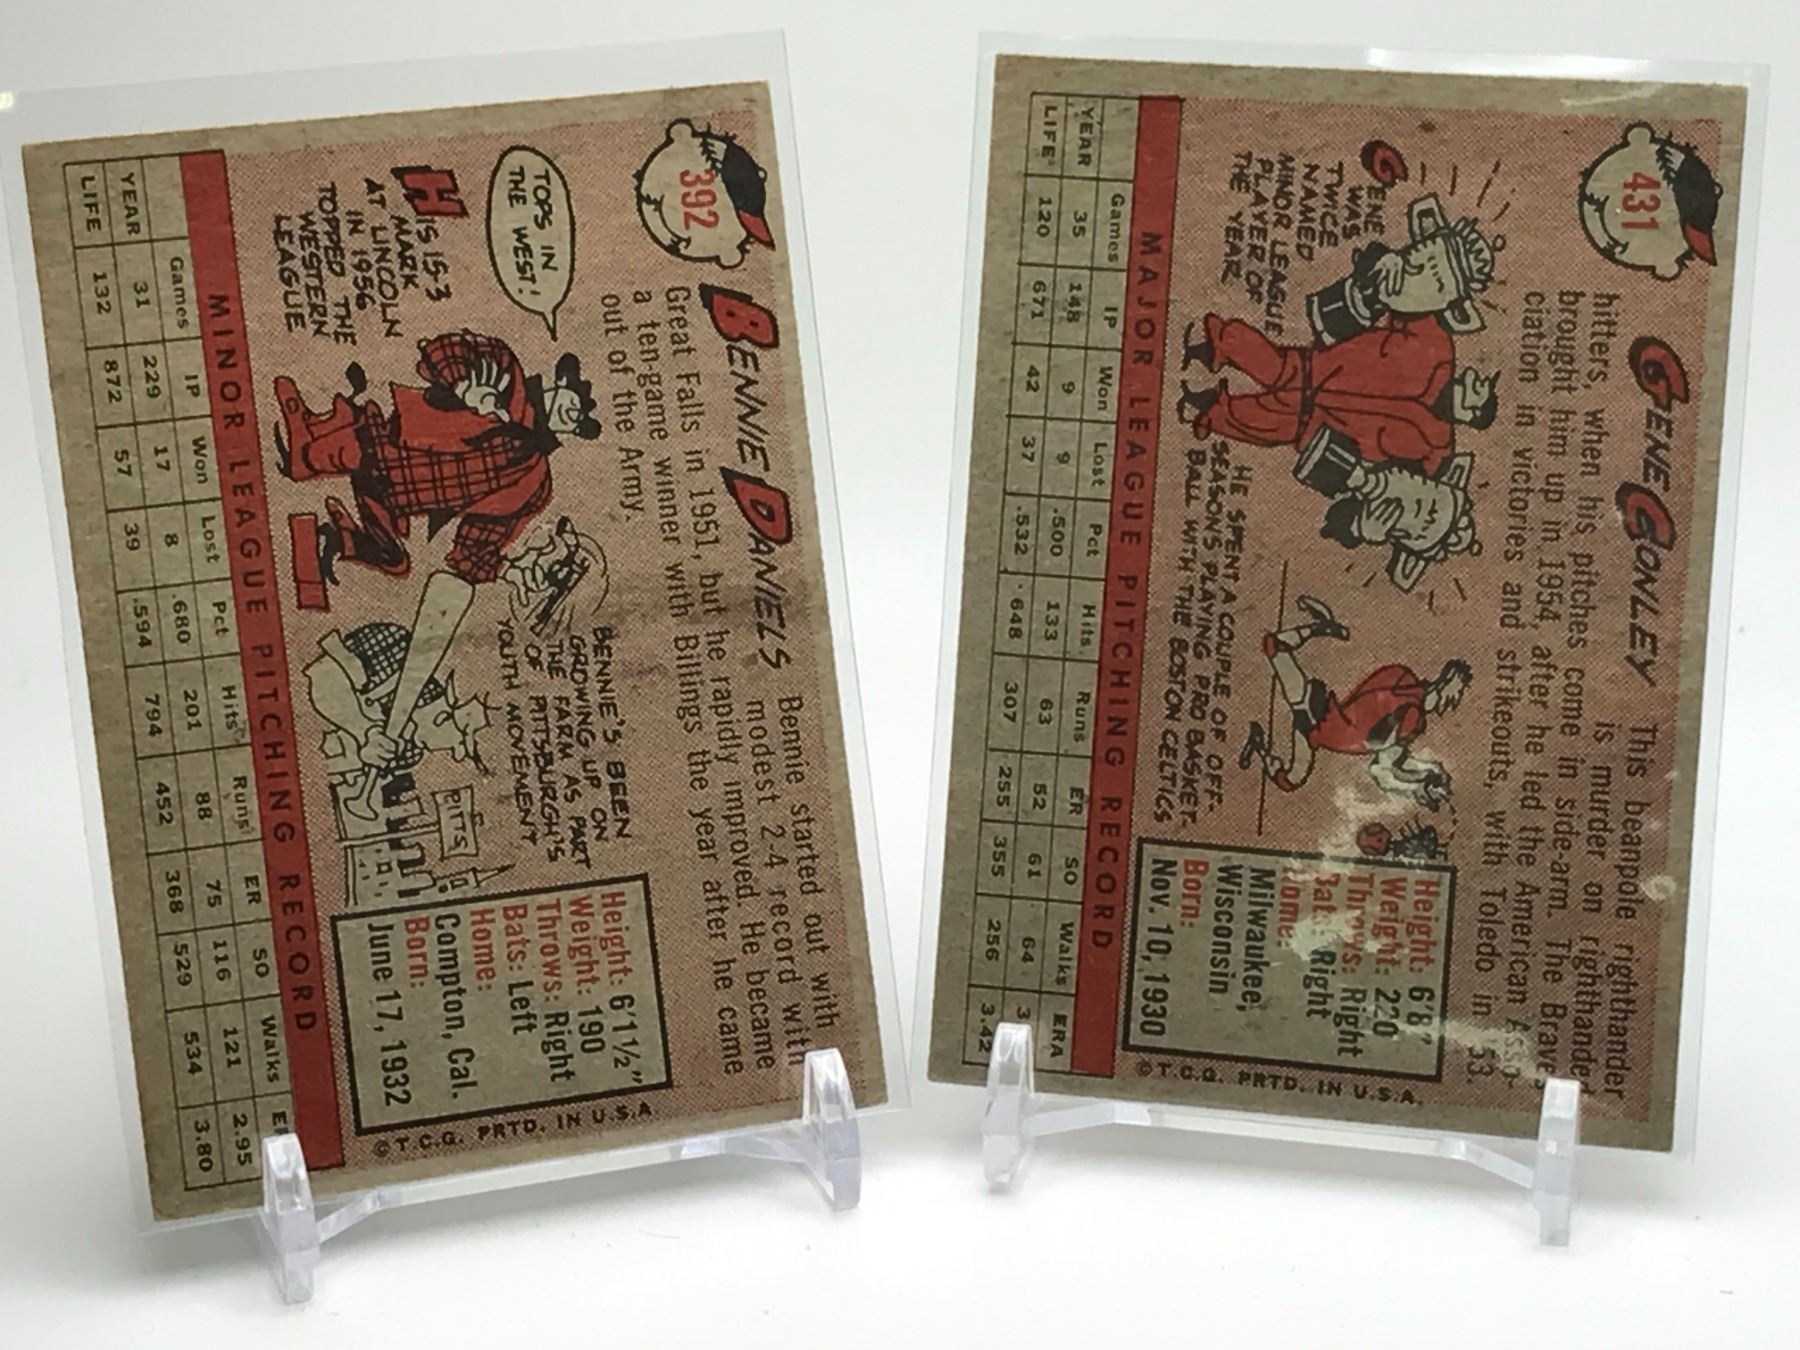 392
BENNIE DANIELS
Bennie started out with
modest 2-4 record with
Great Falls in 1951, but he rapidly improved. He became
a ten-game winner with Billings the year after he came
out of the Army.
TOPS IN
THE WEST!
HIS 15-3
MARK
AT LINCOLN
IN 1956
TOPPED THE
WESTERN
LEAGUE
BENNIE'S BEEN
GROWING UP ON
THE FARM AS PART
OF PITTSBURGH'S
YOUTH MOVEMENT
PITTS.
Height: 6'1½"
Weight: 190
Throws: Right
Bats: Left
Home:
Compton, Cal.
Born:
June 17, 1932
MINOR LEAGUE PITCHING RECORD
Games IP Won Lost Pct Hits Runs ER SO Walks
YEAR 31 229 17 8 .680 201 88 75 116 121 2.95
LIFE 132 872 57 39 .594 794 452 368 529 534 3.80
© T.C.G. PRTD. IN U.S.A.
431
GENE CONLEY
This beanpole righthander
is murder on righthanded
hitters, when his pitches come in side-arm. The Braves
brought him up in 1954, after he led the American Asso-
ciation in victories and strikeouts, with Toledo in '53.
GENE
WAS
TWICE
NAMED
MINOR LEAGUE
PLAYER OF
THE YEAR
HE SPENT A COUPLE OF OFF-
SEASON'S PLAYING PRO BASKET-
BALL WITH THE BOSTON CELTICS
Height: 6'8"
Weight: 220
Throws: Right
Bats: Right
Home:
Milwaukee,
Wisconsin
Born:
Nov. 10, 1930
MAJOR LEAGUE PITCHING RECORD
Games IP Won Lost Pct Hits Runs ER SO Walks ERA
YEAR 35 148 9 9 .500 133 63 52 61 64
LIFE 120 671 42 37 .532 648 307 255 355 256 3.42
© T.C.G. PRTD. IN U.S.A.